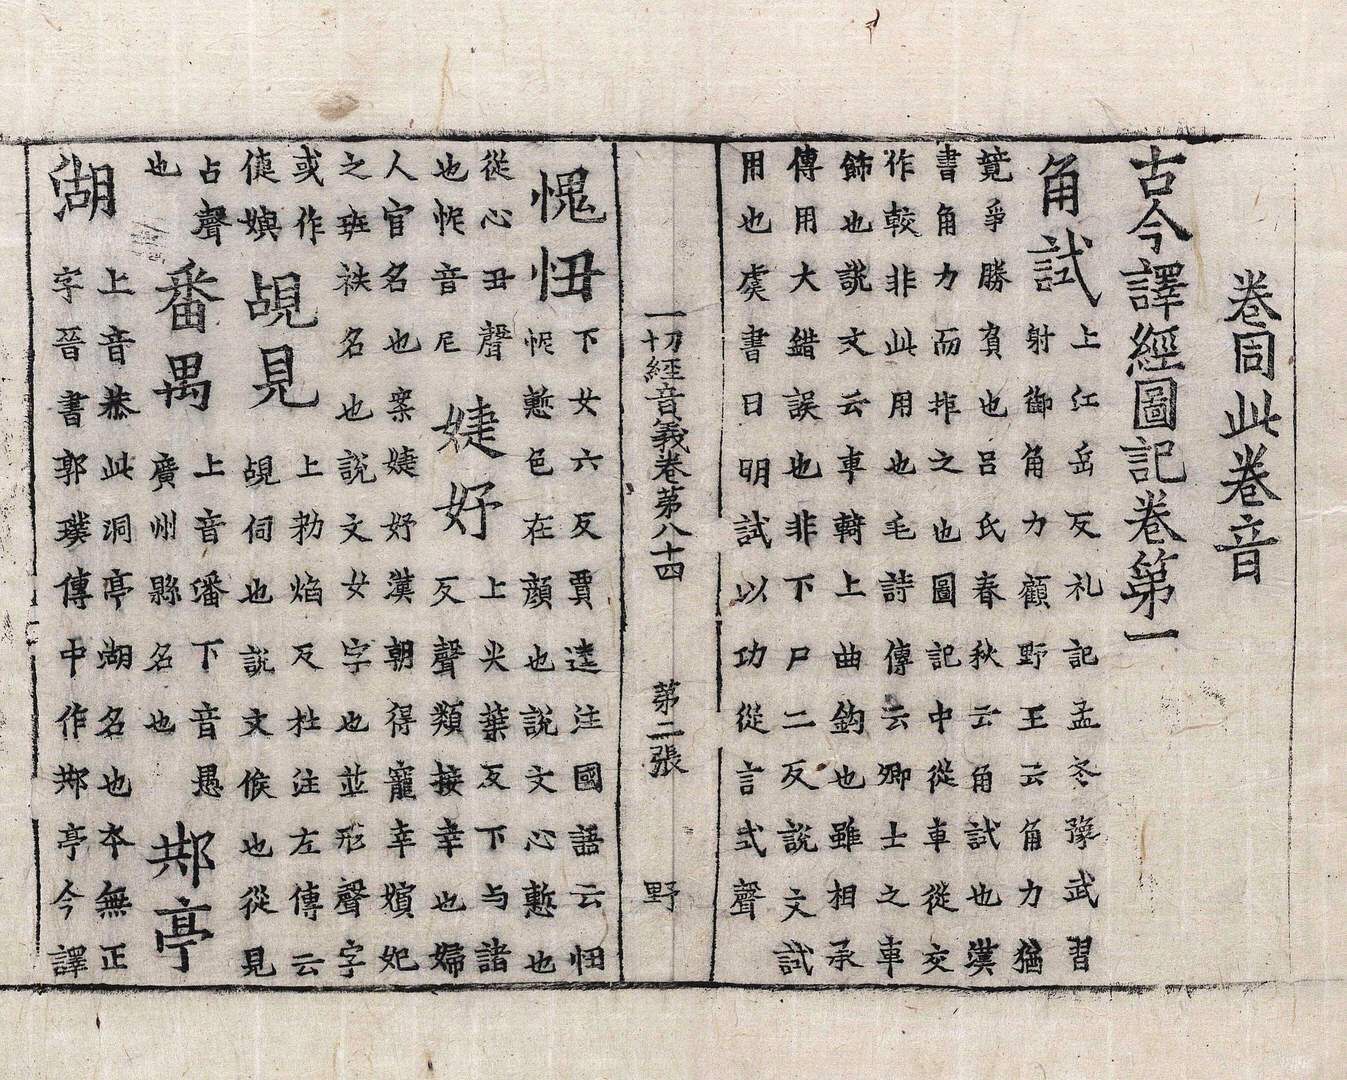 卷同此卷音
古今譯經圖記卷第一
角試 上江岳反礼記孟冬豫武習
射御角力顧野王云角力猶
競爭勝負也呂氏春秋云角試也漢
書角力而拒之也圖記中從車從交
作較非此用也毛詩傳云卿士之車
飾也說文云車輢上曲鈎也雖相承
傳用大錯誤也非下尸二反說文試
用也虞書曰明試以功從言式聲
一切經音義卷第八十四 第二張 野
愧忸 下女六反賈逵注國語云忸
怩慙色在顔也說文心慙也
從心丑聲
也怩音尼
婕妤 上尖葉反下与諸
反聲類接幸也婦
人官名也案婕妤漢朝得寵幸嬪妃
之班袟名也說文女字也並形聲字
或作
倢㜰
覘見 上勑焰反杜注左傳云
覘伺也說文候也從見
占聲
也
番禺 上音潘下音愚
廣州縣名也
䢼亭
湖 上音恭此洞亭湖名也本無正
字晉書郭璞傳中作䢼亭今譯